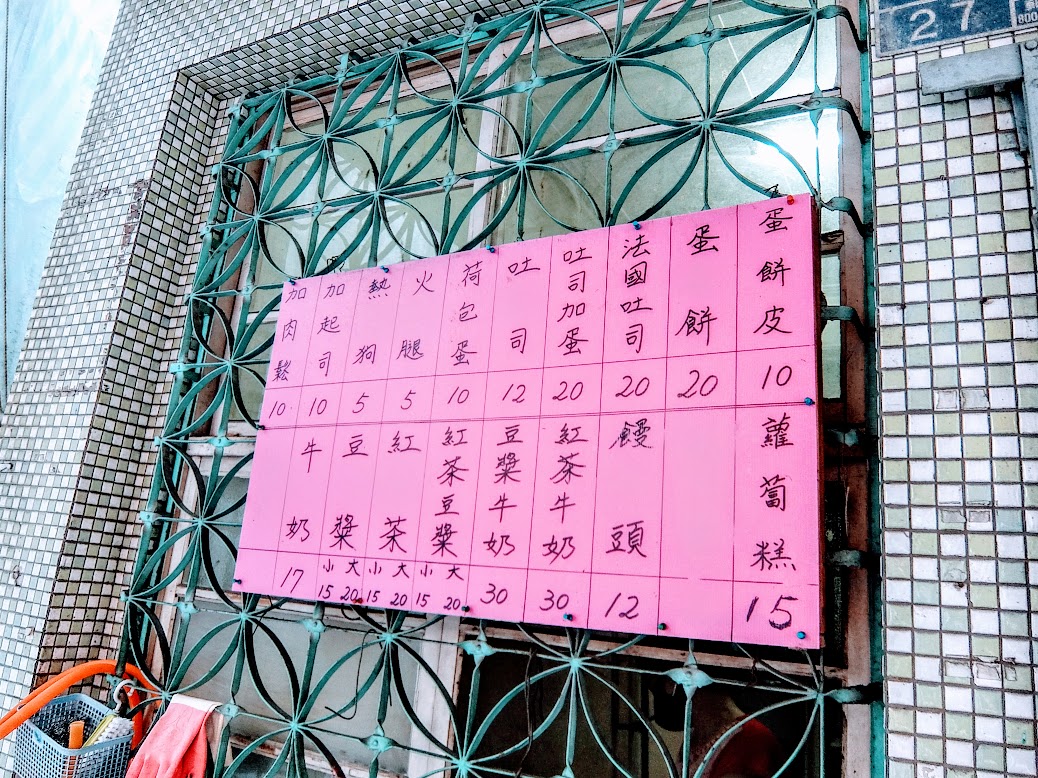 蛋餅皮 10
蛋餅 20
法國吐司 20
吐司加蛋 20
吐司 12
荷包蛋 10
火腿 5
熱狗 5
加起司 10
加肉鬆 10
蘿蔔糕 15
饅頭 12
紅茶牛奶 30
豆槳牛奶 30
紅茶豆槳 大20 小15
紅茶 大20 小15
豆槳 大20 小15
牛奶 17
27
800